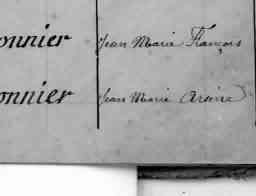 onnier Jean Marie François
onnier Jean Marie Arsène